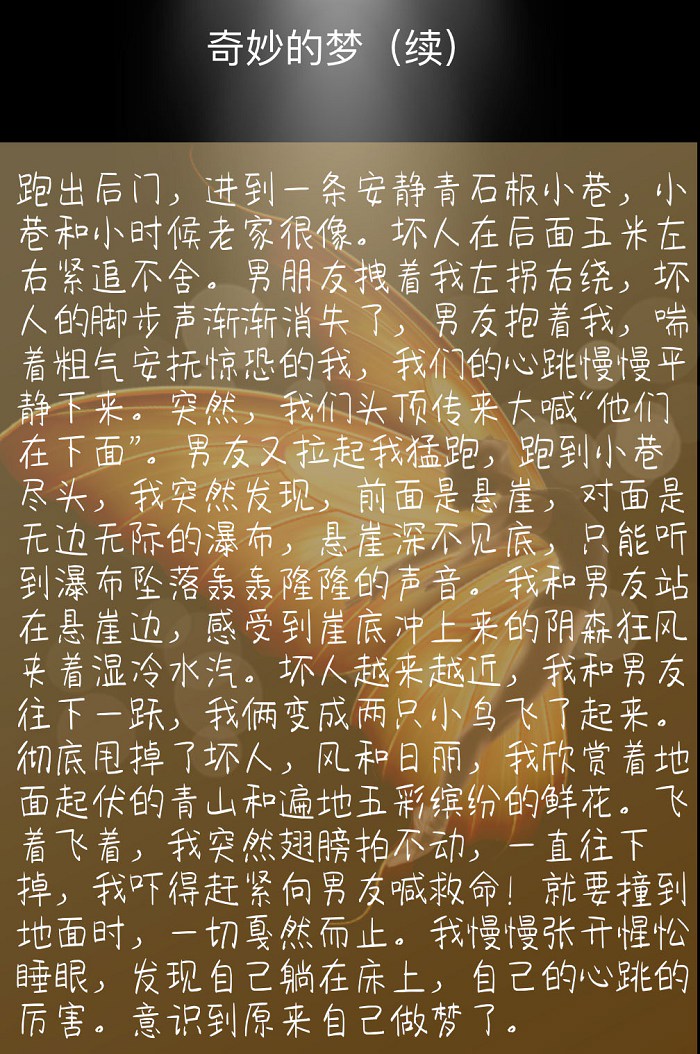 奇妙的梦（续）
跑出后门，进到一条安静青石板小巷，小
巷和小时候老家很像。坏人在后面五米左
右紧追不舍。男朋友拽着我左拐右绕，坏
人的脚步声渐渐消失了，男友抱着我，喘
着粗气安抚惊恐的我，我们的心跳慢慢平
静下来。突然，我们头顶传来大喊“他们
在下面”。男友又拉起我猛跑，跑到小巷
尽头，我突然发现，前面是悬崖，对面是
无边无际的瀑布，悬崖深不见底，只能听
到瀑布坠落轰轰隆隆的声音。我和男友站
在悬崖边，感受到崖底冲上来的阴森狂风
夹着湿冷水汽。坏人越来越近，我和男友
往下一跃，我俩变成两只小鸟飞了起来。
彻底甩掉了坏人，风和日丽，我欣赏着地
面起伏的青山和遍地五彩缤纷的鲜花。飞
着飞着，我突然翅膀拍不动，一直往下
掉，我吓得赶紧向男友喊救命！就要撞到
地面时，一切戛然而止。我慢慢张开惺忪
睡眼，发现自己躺在床上，自己的心跳的
厉害。意识到原来自己做梦了。